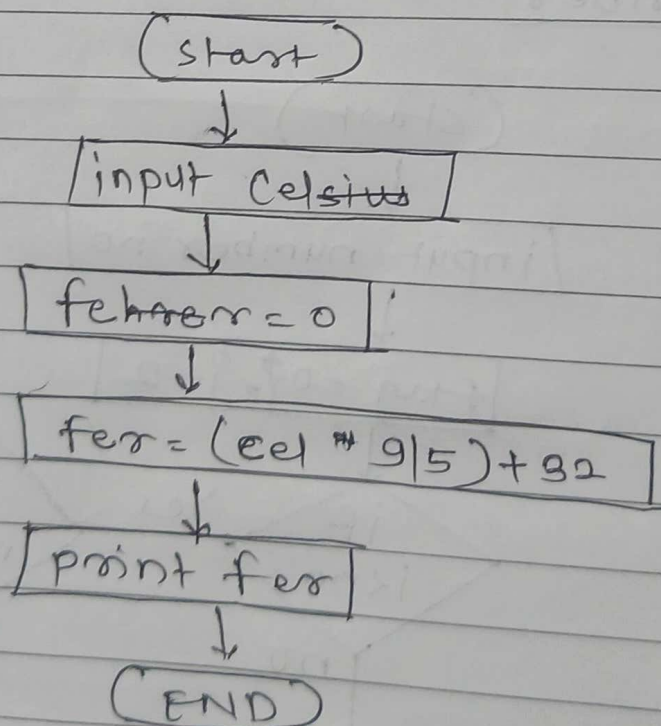 start
input Celsius
fehrer = 0
fer = (cel * 9/5) + 32
print fer
END